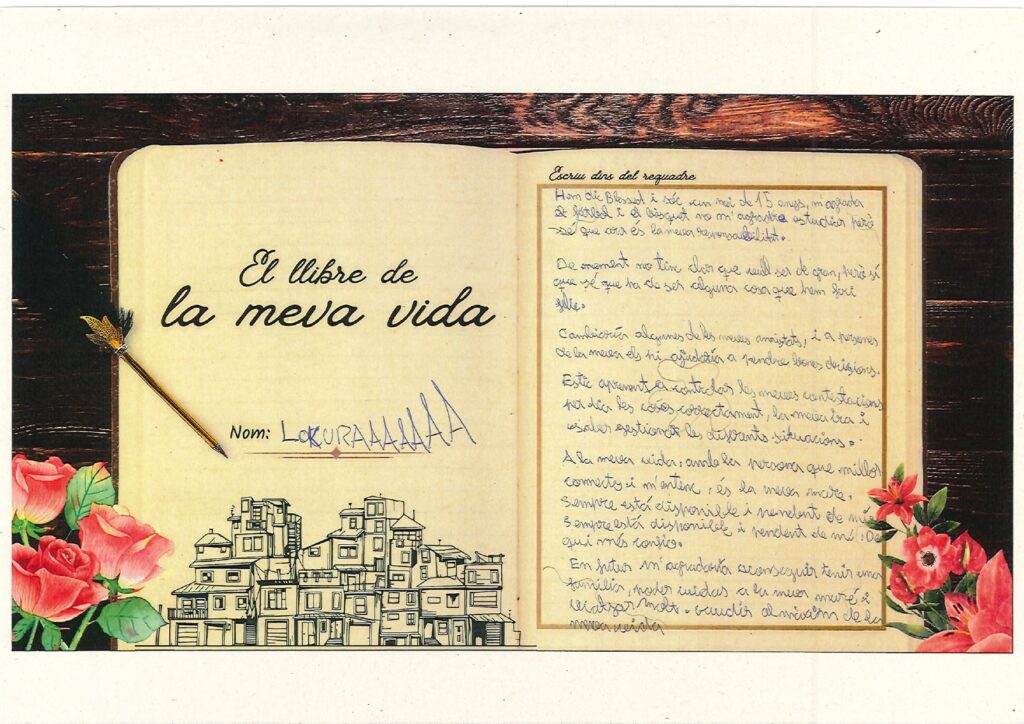 El llibre de
la meva vida
Nom: LOKURAAAAAAA
Escriu dins del requadre
Hem dic Blessed i sóc un noi de 15 anys, m'agrada
el fútbol i el bàsquet no m'agrada estudiar però
sé que això és la meva responsabilitat.
De moment no tinc clar que vull ser de gran, però sí
que sé que ha de ser alguna cosa que hem faci
feliç.
Canviaria algunes de les meves amistats, i a persones
de la meva els hi ajudaria a pendre bones decisions.
Estic aprenent a controlar les meves contestacions
per dir les coses correctament, la meva ira i
saber gestionar les diferents situacions.
A la meva vida, amb la persona que millor
connecto i m'entenc, és la meva mare.
Sempre està disponible i pendent de mi
Sempre està disponible i pendent de mi. De
qui més confio.
En futur m'agradaria aconseguir tenir una
família, poder cuidar a la meva mare i
viatjar molt. Gaudir al màxim de la
meva vida